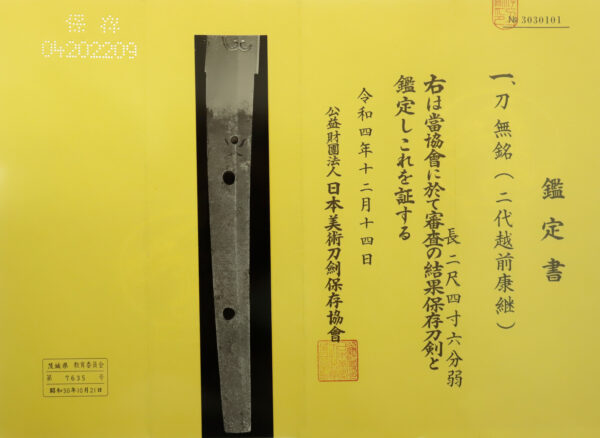 鑑定書
№ 3030101
一、刀 無銘(二代越前康継)
長 二尺四寸六分弱
右は當協會に於て審査の結果保存刀剣と
鑑定しこれを証する
令和四年十二月十四日
公益財團法人 日本美術刀劍保存協會
保存
04202209
茨城県 教育委員会
第 7635 号
昭和50年10月21日